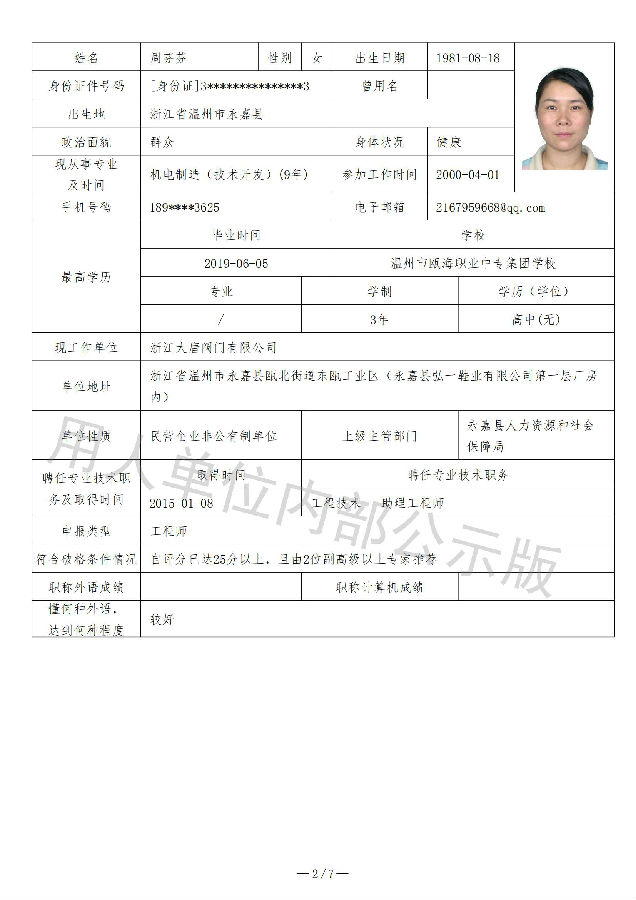 姓名 周芬芬 性别 女 出生日期 1981-08-18
身份证件号码 [身份证]3***************3 曾用名
出生地 浙江省温州市永嘉县
政治面貌 群众 身体状况 健康
现从事专业
及时间 机电制造（技术开发）(9年) 参加工作时间 2000-04-01
手机号码 189****3625 电子邮箱 2167959668@qq.com
最高学历
毕业时间 学校
2019-06-05 温州市瓯海职业中专集团学校
专业 学制 学历（学位）
/ 3年 高中(无)
现工作单位 浙江大唐阀门有限公司
单位地址 浙江省温州市永嘉县瓯北街道东瓯工业区（永嘉县弘一鞋业有限公司第一层厂房
内）
单位性质 民营企业非公有制单位 上级主管部门 永嘉县人力资源和社会
保障局
聘任专业技术职
务及取得时间
取得时间 聘任专业技术职务
2015-01-08 工程技术 助理工程师
申报类型 工程师
符合破格条件情况 自评分已达25分以上，且由2位副高级以上专家推荐
职称外语成绩 职称计算机成绩
懂何种外语，
达到何种程度 较好
用人单位内部公示版
— 2 / 7 —